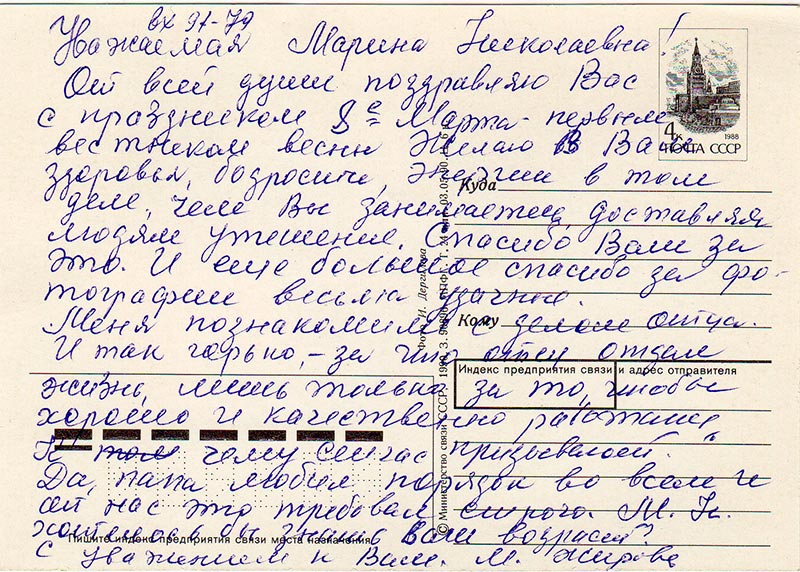 вх 91-79
Уважаемая Марина Николаевна!
От всей души поздравляю Вас
с праздником 8е Марта - первым
вестником весны Желаю В Вам
здоровья, бодрости, энергии в том
деле, чем Вы занимаетесь, доставляя
людям утешения. Спасибо Вам за
это. И еще большое спасибо за фо-
тографии весьма удачные.
Меня познакомили с делом отца.
И так горько, - за что отец отдал
жизнь, лишь только за то, чтобы
хорошо и качественно работали,
К том чему сейчас призывают.
Да, папа любил порядок во всем и
от нас это требовал строго. М. Н.
хотелось бы знать Ваш возраст?
С уважением к Вам. М. Жирова
4к
1988
ПОЧТА СССР
Куда
Кому
Индекс предприятия связи и адрес отправителя
Пишите индекс предприятия связи места назначения
© Министерство связи СССР. 1990. З.
Фото И. Дергилёва